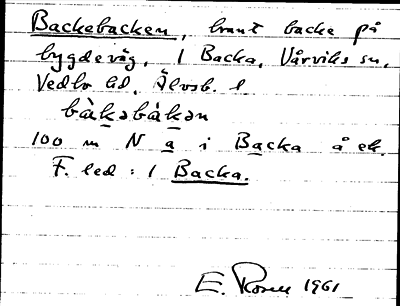 Backebacken, brant backe på
bygdeväg, 1 Backa, Vårviks sn,
Vedbo hd, Älvsb. l.
bàkəbàkən
100 m N a i Backa å ek.
F. led: 1 Backa.
E. Rosell 1961